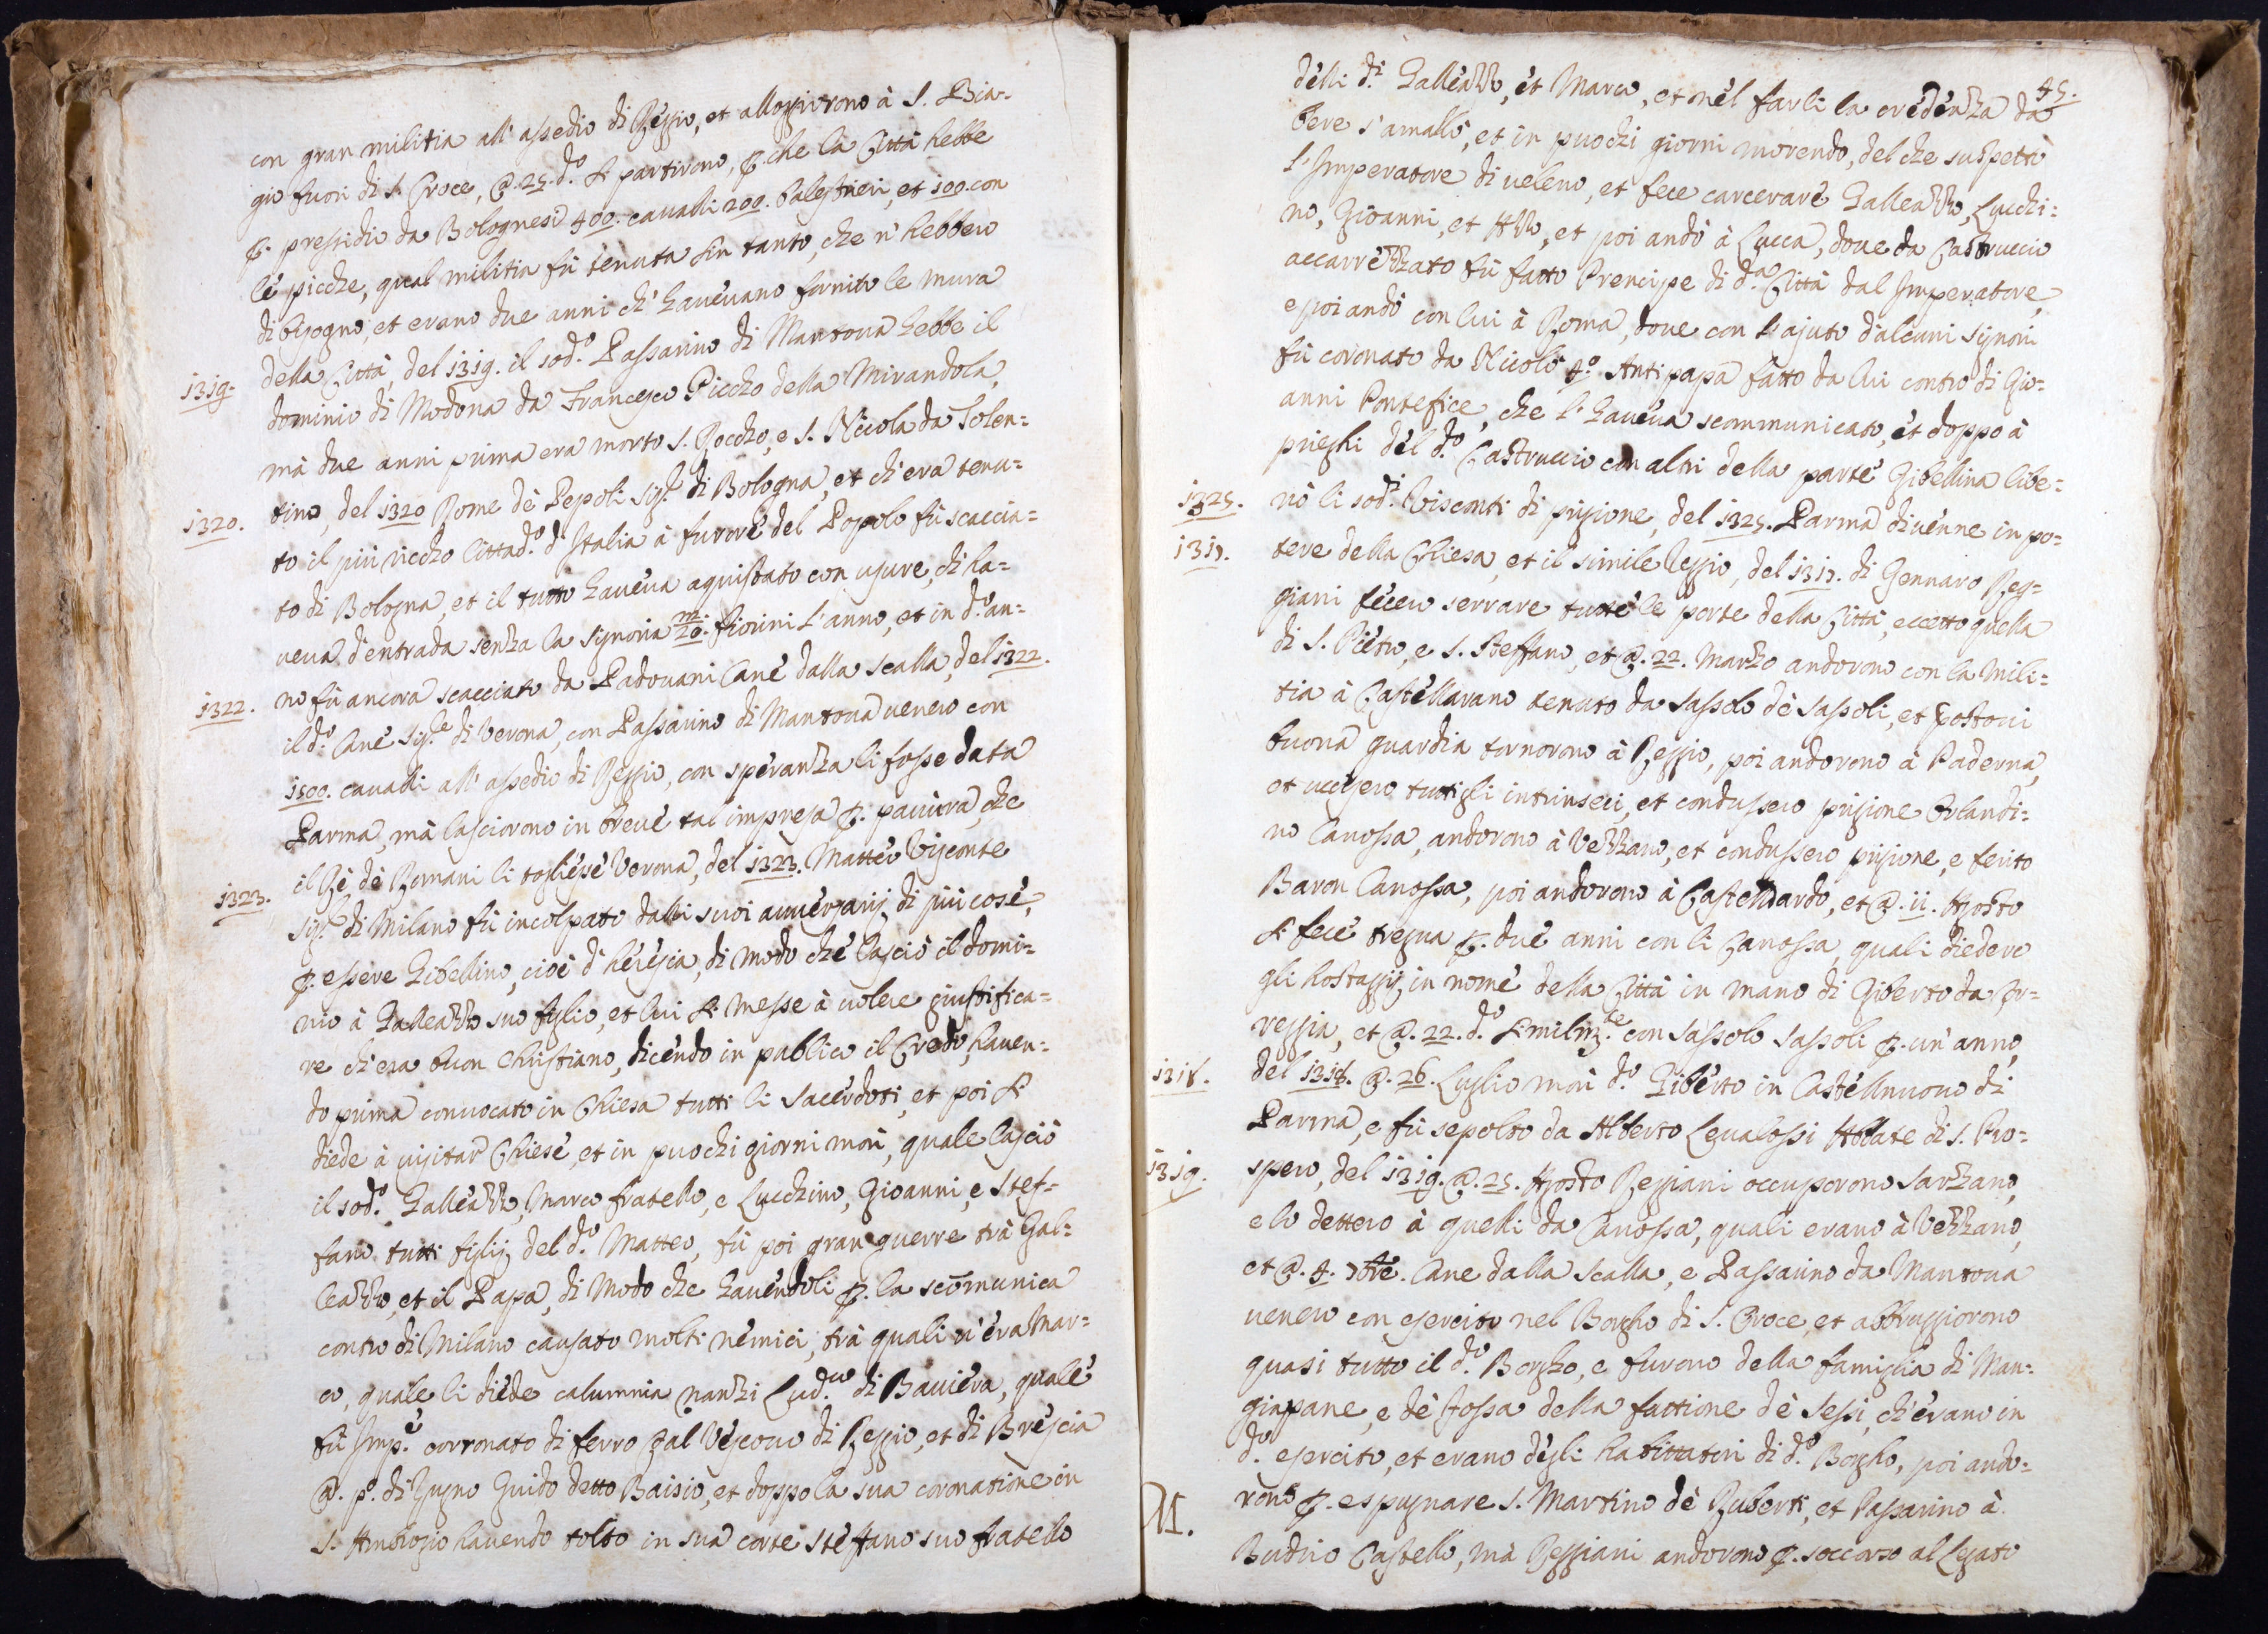 con gran militia all' assedio di Reggio, et alloggiorono à S. Bia-
gio fuori di S. Croce, @. 25. d.º si partirono, p. che la Città hebbe
p. pressidio da Bolognesi 400. cavalli 200. balestrieri, et 100. con
le picche, qual militia fù tenuta sin tanto, che n' hebbero
di bisogno, et erano due anni ch' havevano fornito le mura
1319. della Città, del 1319. il sod.º Passarino di Mantova hebbe il
dominio di Modona da Francesco Piccho della Mirandola,
mà due anni prima era morto S. Roccho, e S. Nicola da Tolen=
1320. tino, del 1320 Rome de Pepoli Sig.r di Bologna, et ch' era tenu=
to il più riccho Cittad.º d' Italia à furore del Popolo fù scaccia=
to di Bologna, et il tutto haveva aquistato con usure, ch' ha=
veva d'entrada senza la signoria m/20. fiorini l'anno, et in d.º an=
1322. no fù ancora scacciato da Padovani Cane dalla Scalla, del 1322.
il d.º Cane Sig.le di Verona, con Passarino di Mantova venero con
1500. cavalli all' assedio di Reggio, con speranza li fosse data
Parma, mà lasciorono in breve tal impresa p. paiura, che
1323. il Rè de Romani li togliese Verona, del 1323. Matteo Visconte
Sig.r di Milano fù incolpato dalli suoi avversarij di più cose,
p. essere Gibellino, cioè d' heresia, di modo che lasciò il domi=
nio à Galleazzo suo figlio, et lui si messe à volere giustifica=
re ch' era buon Christiano, dicendo in publico il Credo, haven=
do prima convocato in Chiesa tutti li Sacerdoti, et poi si
diede à visitar Chiese, et in puochi giorni morì, quale lasciò
il sod.º Galleazzo, Marco fratello, e Lucchino, Gioanni, e Stef-
fano tutti figlij del d.º Matteo, fù poi gran guerre trà Gal=
leazzo, et il Papa, di modo che havendoli p. la scomunica
contro di Milano causato molti nemici, trà quali v' era Mar=
co, quale li diede calumnia nanzi Lud.co di Baviera, quale
fù Imp.e corronato di ferro dal Vescovo di Reggio, et di Brescia
@. p.º di Zugno Guido detto Baisio, et doppo la sua coronatione in
S. Ambrogio havendo tolto in sua corte Steffano suo fratello
45.
delli d.i Galleazzo, et Marco, et nel farli la credenza da
bere s'amallò, et in puochi giorni morendo, del che suspettò
l'Imperatore di veleno, et fece carcerare Galleazzo, Lucchi=
no, Gioanni, et Azzo, et poi andò à Lucca, dove da Castruccio
accarrezzato fù fatto Prencipe di d.a Città dal Imperatore,
e poi andò con lui à Roma, dove con l'ajuto d'alcuni signori
fù coronato da Nicolò 4.º Antipapa fatto da lui contro di Gio=
anni Pontefice, che l'haveva scommunicato, et doppo à
prieghi del d.º Castruccio con altri della parte Gibellina libe=
1325. rò li sod.i Visconti di prigione, del 1325. Parma divenne in po=
1317. tere della Chiesa, et il simile Reggio, del 1317. di Gennaro Reg=
giani fecero serrare tutte le porte della Città, eccetto quella
di S. Pietro, e S. Steffano, et @. 22. Marzo andorono con la mili=
tia à Castellarano tenuto da Sassolo de Sassoli, et postovi
buona guardia tornorono à Reggio, poi andorono à Paderna,
et uccisero tutti gli intrinseci, et condussero prigione Orlandi=
no Canossa, andorono à Vezzano, et condussero prigione, e ferito
Baron Canossa, poi andorono à Castelldardo, et @. 11. Agosto
si fece tregua p. due anni con li Canossa, quali diedero
gli hostaggij in nome della Città in mano di Giberto da Cor=
reggia, et @. 22. d.º con Sassolo Sassoli p. un' anno,
1318. del 1318. @. 26. Luglio morì d.º Giberto in Castellnuovo di
Parma, e fù sepolto da Alberto Levalossi Abbate di S. Pro=
1319. spero, del 1319. @. 25. Agosto Reggiani occuporono Sarzano,
e lo dettero à quelli da Canossa, quali erano à Vezzano,
et @. 4. 7bre. Cane dalla Scalla, e Passarino da Mantova
venero con esercito nel Borgho di S. Croce, et abbruggiorono
quasi tutto il d.º Borgho, e furono della famiglia di Man=
giapane, e de Fossa della fattione de Sessi, ch' erano in
d.º esercito, et erano degli habittatori di d.º Borgho, poi ando=
M. rono p. espugnare S. Martino de Ruberti, et Passarino à
Budrio Castello, mà Reggiani andorono p. soccorso al Legato